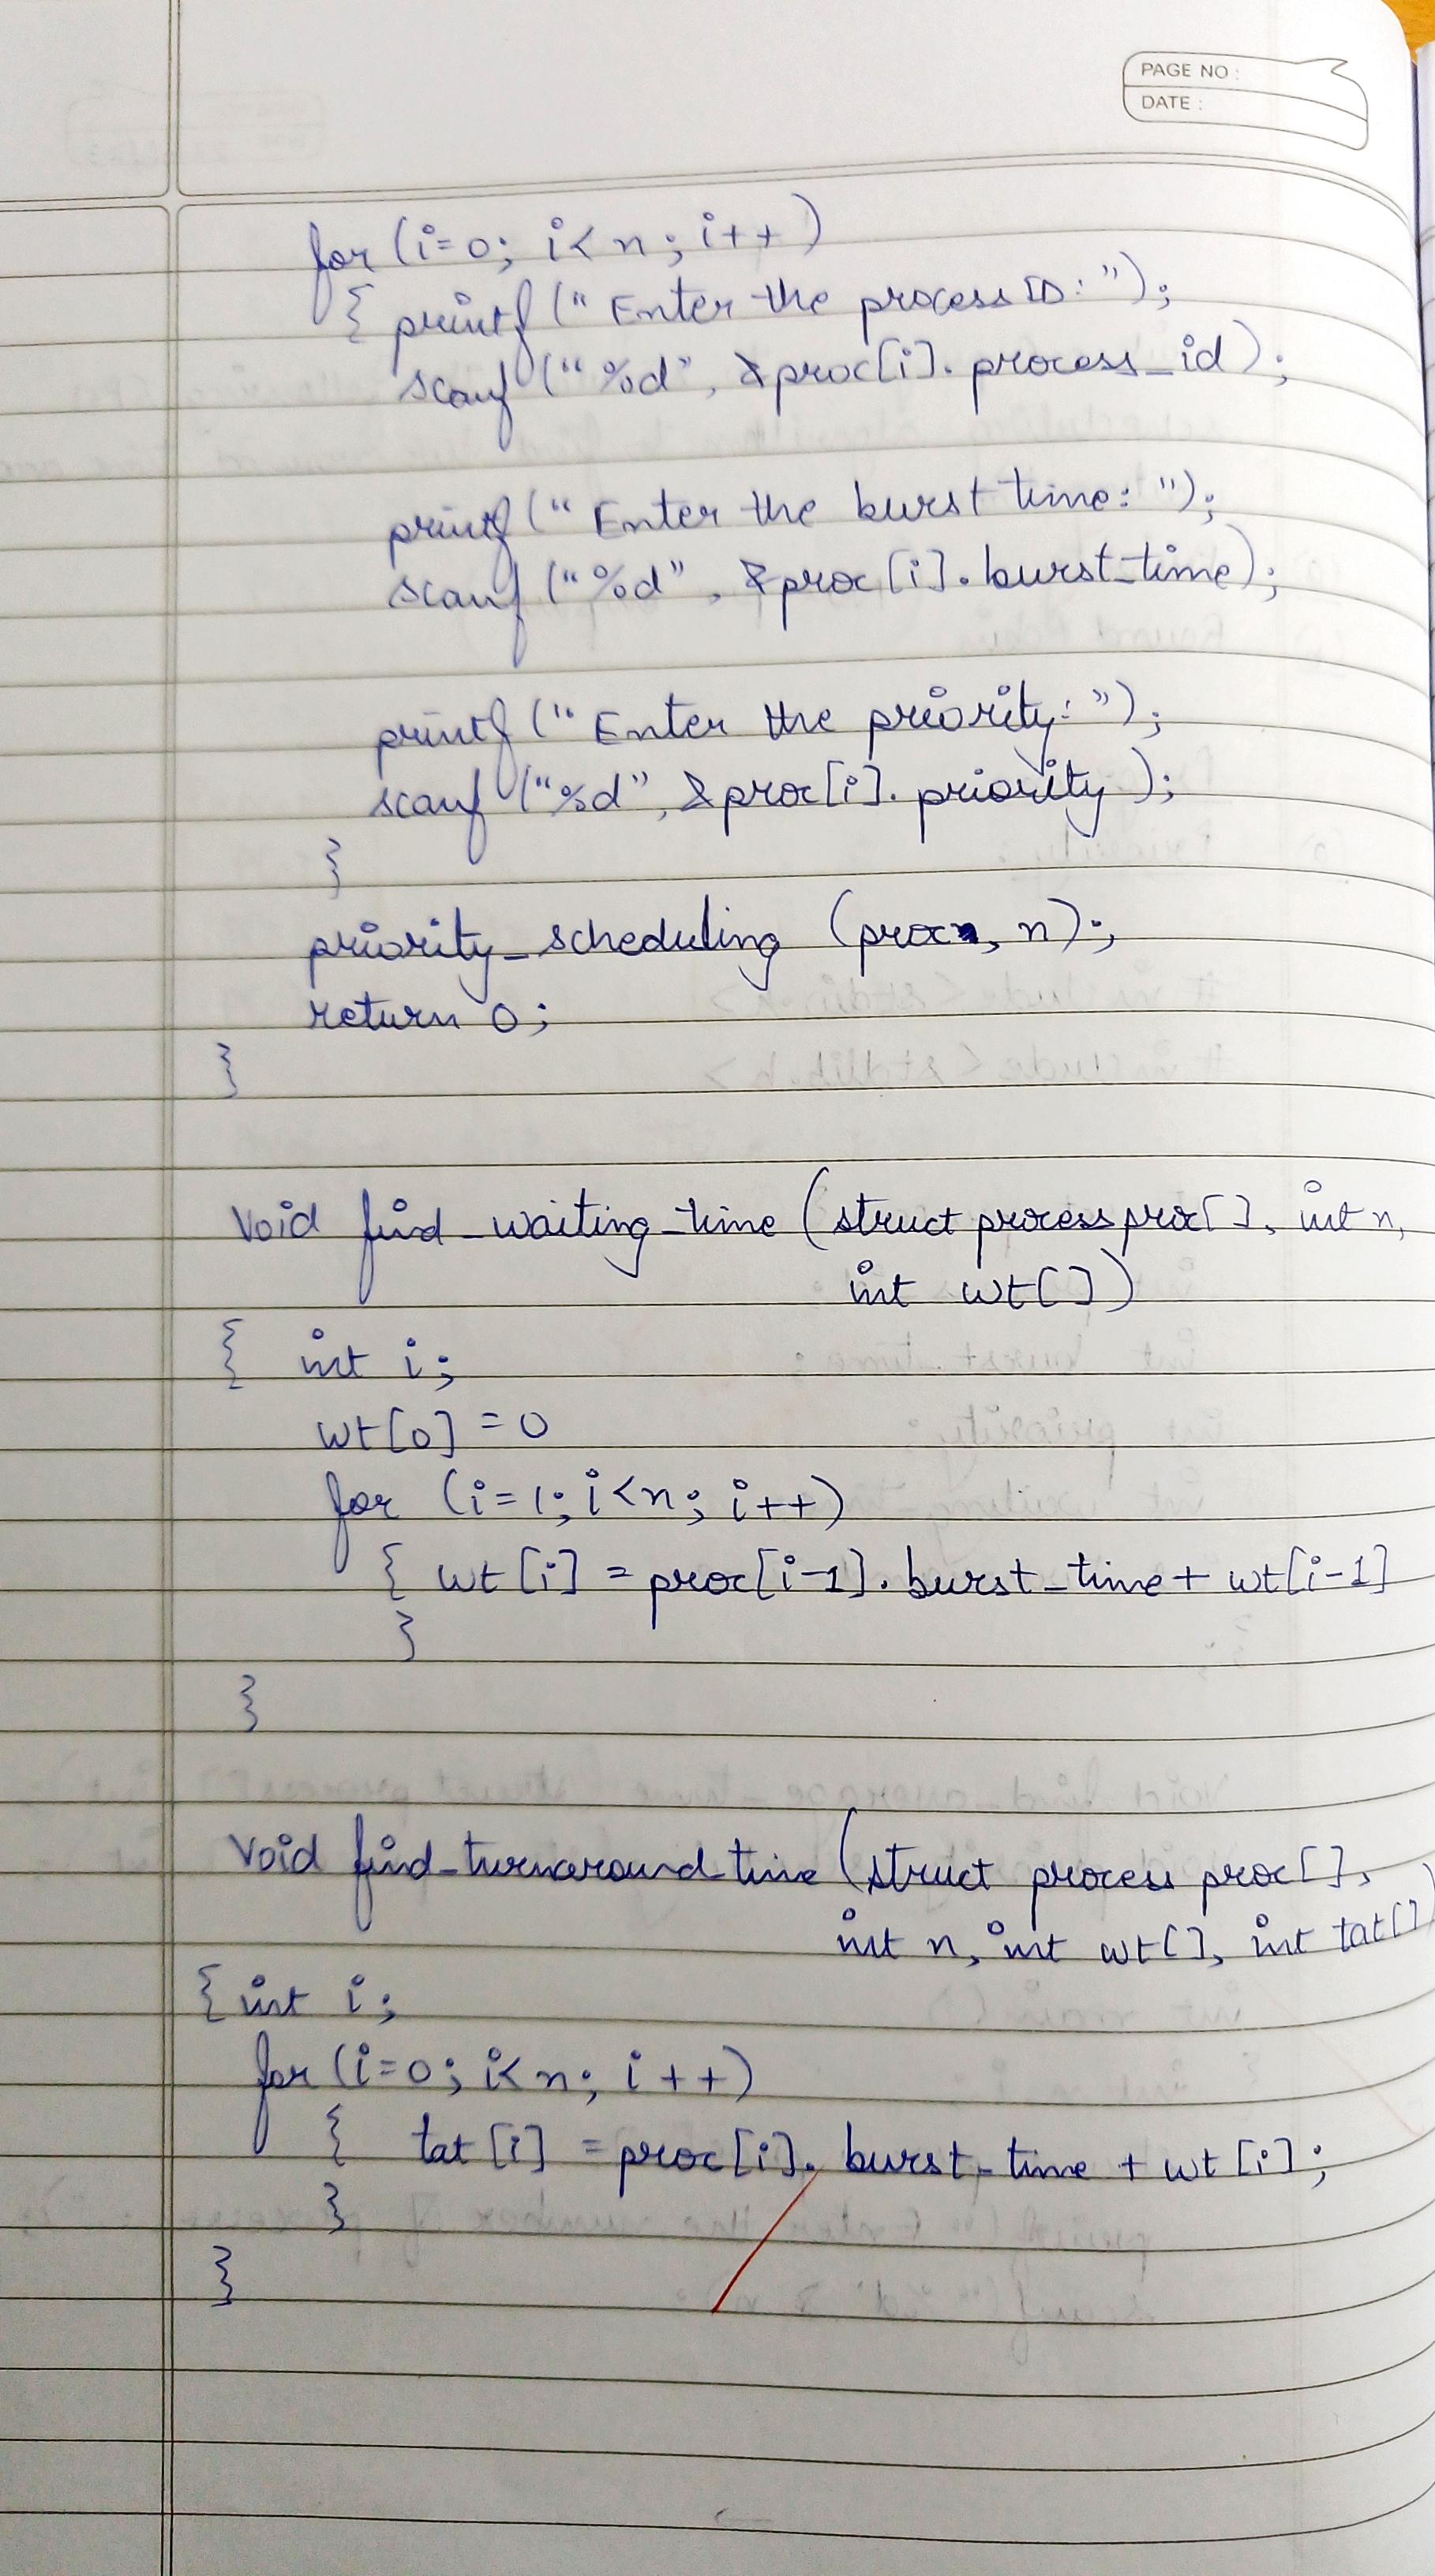 PAGE NO :
DATE :
for (i=0; i<n; i++)
{ printf (" Enter the process ID: ");
scanf ("%d", &proc[i].process_id);
printf (" Enter the burst time: ");
scanf ("%d", &proc[i].burst_time);
printf (" Enter the priority: ");
scanf ("%d", &proc[i].priority);
}
priority_scheduling (proc, n);
return 0;
}
Void find_waiting_time (struct process proc[], int n,
int wt[])
{ int i;
wt[0] = 0
for (i=1; i<n; i++)
{ wt[i] = proc[i-1].burst_time + wt[i-1]
}
}
Void find_turnaround_time (struct process proc[],
int n, int wt[], int tat[])
{ int i;
for (i=0; i<n; i++)
{ tat[i] = proc[i].burst_time + wt[i];
}
}